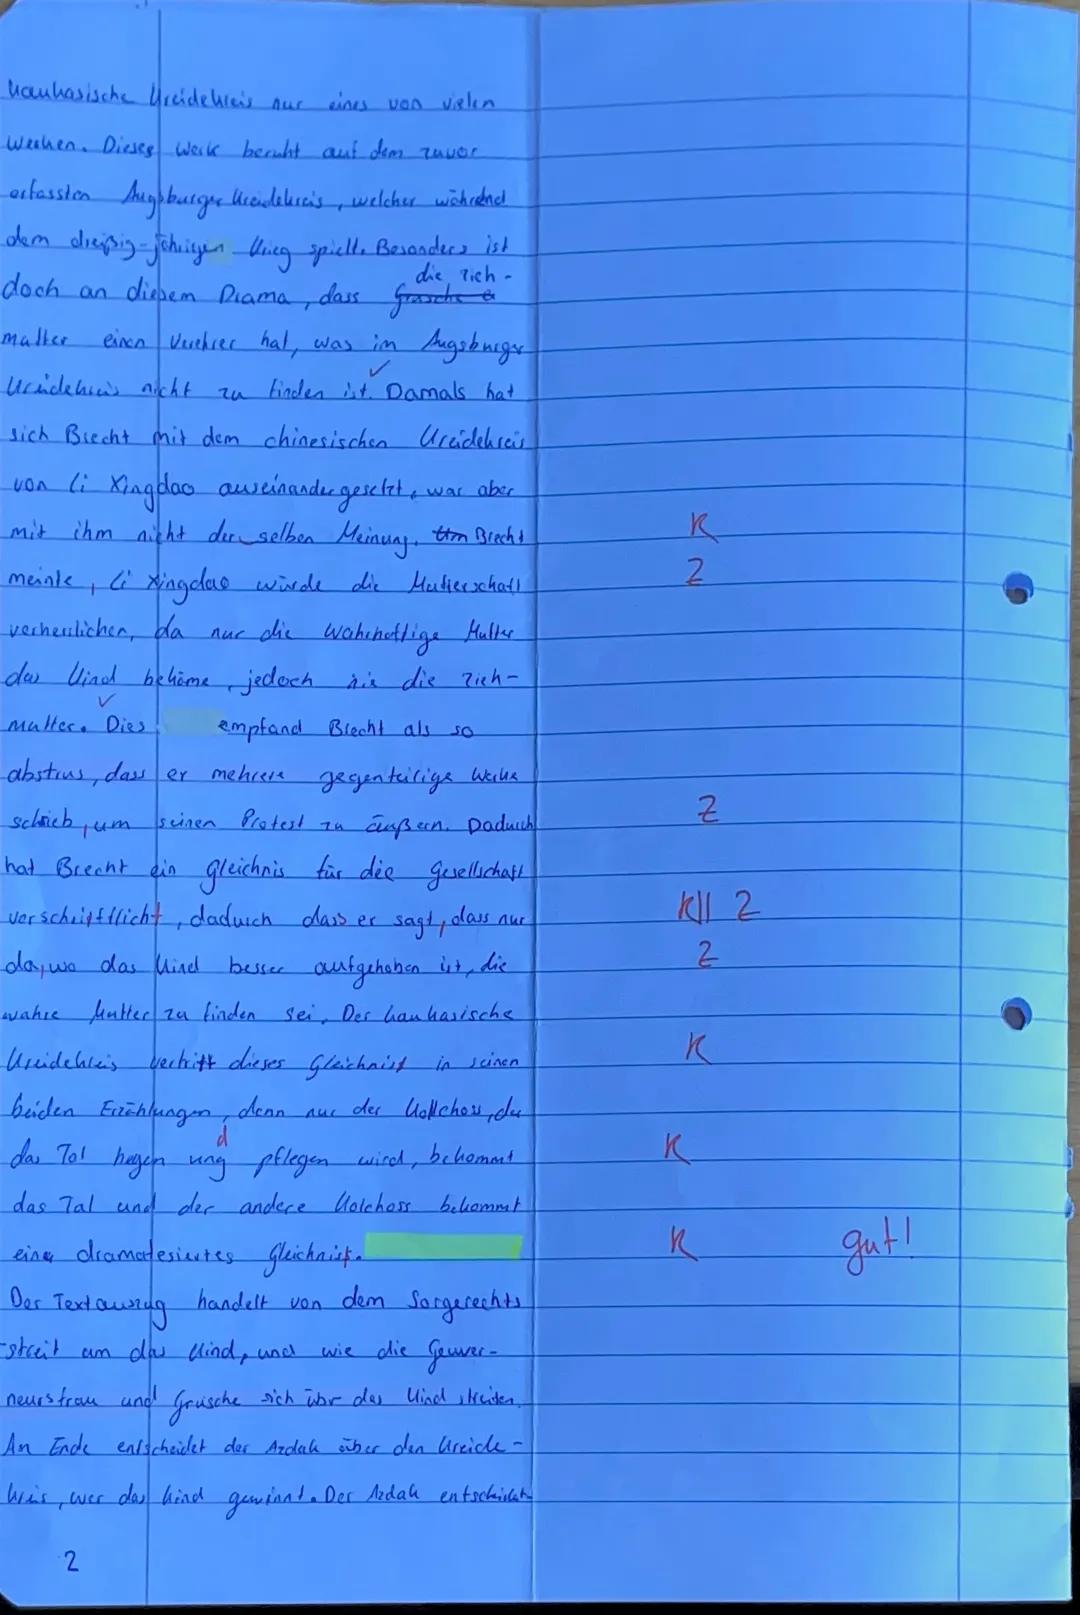 kaukasische Kreidekreis nur eines von vielen
Werken. Dieses Werk beruht auf dem zuvor
erfassten Augsburger Kreidekreis, welcher während
dem dreißig-jährigen Krieg spielt. Besonders ist
die Zieh-
doch an diesem Drama, dass Grusche
mutter einen Verehrer hat, was im Augsburger
Kreidekreis nicht zu finden ist. Damals hat
sich Brecht mit dem chinesischen Kreidekreis
von Li Xingdao auseinandergesetzt, war aber
mit ihm nicht der selben Meinung. Um Brecht K
meinte, Li Xingdao würde die Mutterschaft Z
verherrlichen, da nur die wahrhaftige Mutter
das Kind bekäme, jedoch nie die Zieh-
mutter. Dies empfand Brecht als so
abstrus, dass er mehrere gegenteilige Werke
schrieb, um seinen Protest zu äußern. Dadurch Z
hat Brecht ein Gleichnis für die Gesellschaft
verschriftllicht, dadurch dass er sagt, dass nur K|| Z
da, wo das Kind besser aufgehoben ist, die Z
wahre Mutter zu finden sei. Der kaukasische
Kreidekreis vertritt dieses Gleichniss in seinen K
beiden Erzählungen, denn nur der Kollchos, der
d
das Tal hegen ung pflegen wird, bekommt K
das Tal und der andere Kolchoss bekommt
eines dramatesiertes Gleichniss. K gut!
Der Textauszug handelt von dem Sorgerechts
-streit um das Kind, und wie die Gouver-
neursfrau und Grusche sich übr das Kind streiten.
Am Ende entscheidet der Azdak über den Kreide-
kreis, wer das Kind gewinnt. Der Azdak entscheidet
2